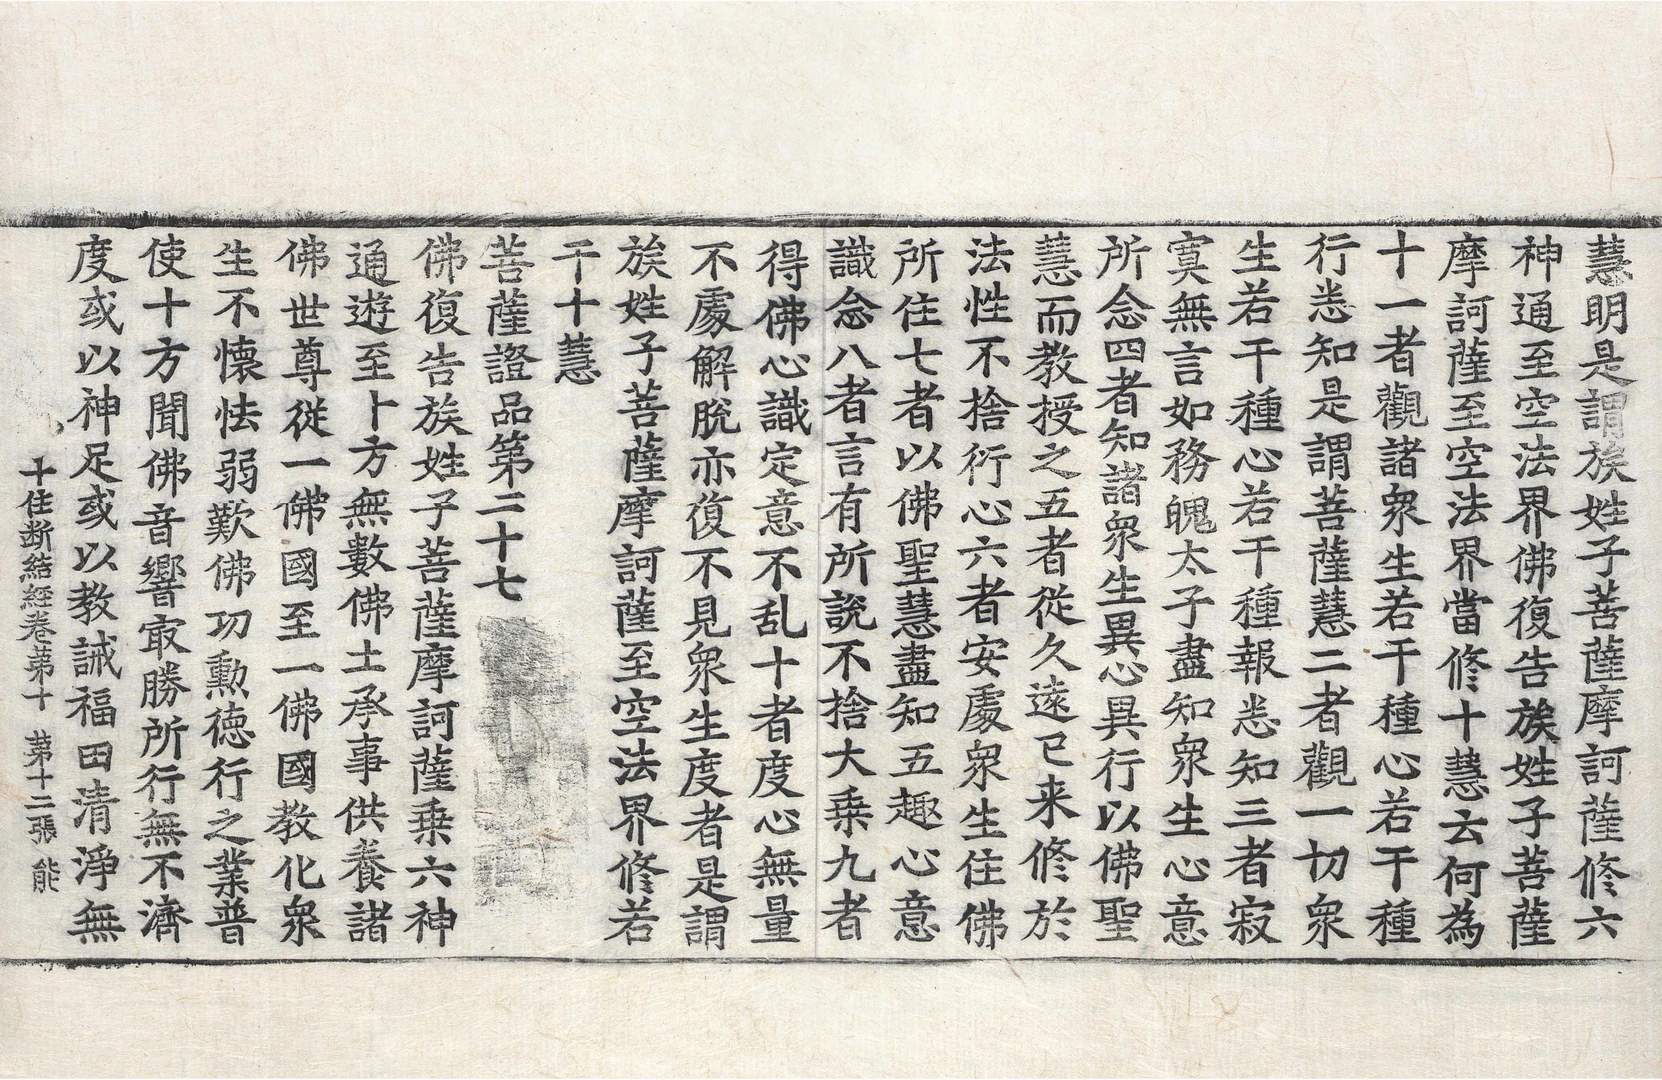 慧明是謂族姓子菩薩摩訶薩修六
神通至空法界佛復告族姓子菩薩
摩訶薩至空法界當修十慧云何為
十一者觀諸衆生若干種心若干種
行悉知是謂菩薩慧二者觀一切衆
生若干種心若干種報悉知三者寂
寞無言如務魄太子盡知衆生心意
所念四者知諸衆生異心異行以佛聖
慧而教授之五者從久遠已来修於
法性不捨衍心六者安處衆生住佛
所住七者以佛聖慧盡知五趣心意
識念八者言有所說不捨大乗九者
得佛心識定意不乱十者度心無量
不處解脫亦復不見衆生度者是謂
族姓子菩薩摩訶薩至空法界修若
干十慧
菩薩證品第二十七
佛復告族姓子菩薩摩訶薩乗六神
通遊至十方無數佛土承事供養諸
佛世尊從一佛國至一佛國教化衆
生不懷怯弱歎佛功勳徳行之業普
使十方聞佛音響㝡勝所行無不濟
度或以神足或以教誡福田清淨無
十住断結経卷苐十 苐十二張 能